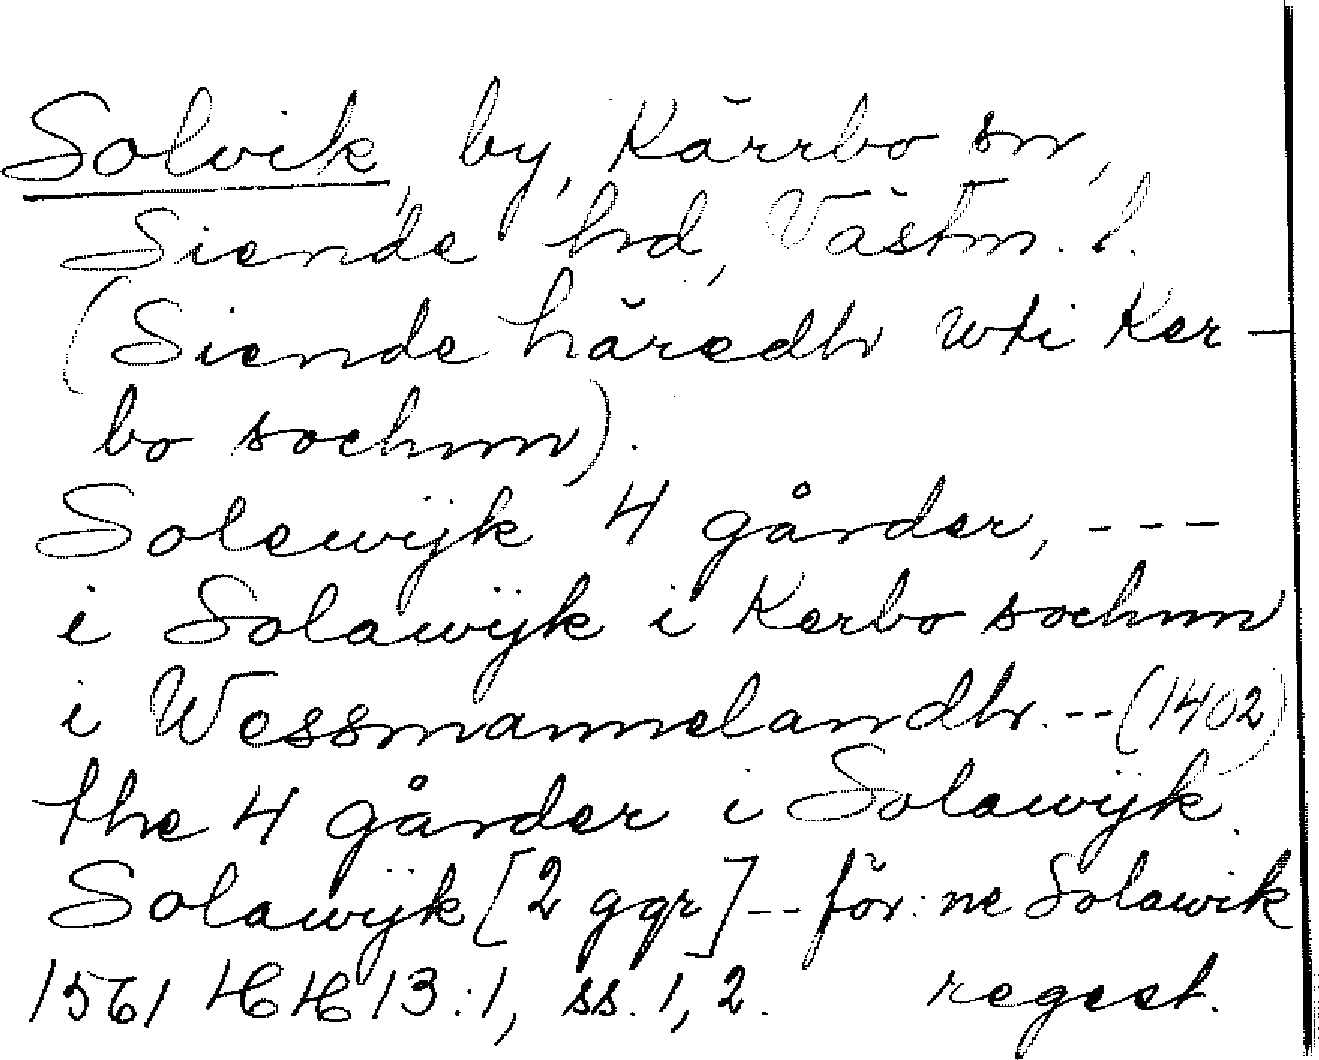 Solvik, by, Kärrbo sn,
Siende hd, Västm. l.
(Siende häredh wti Ker-
bo sochnn).
Solewijk 4 gårder, ---
i Solawijk i Kerbo sochnn
i Wessmannelandh. -- (1402)
the 4 gårder i Solawijk.
Solawijk [2 ggr] -- för:ne Solawik
1561 HH 13:1, ss. 1, 2. regest.